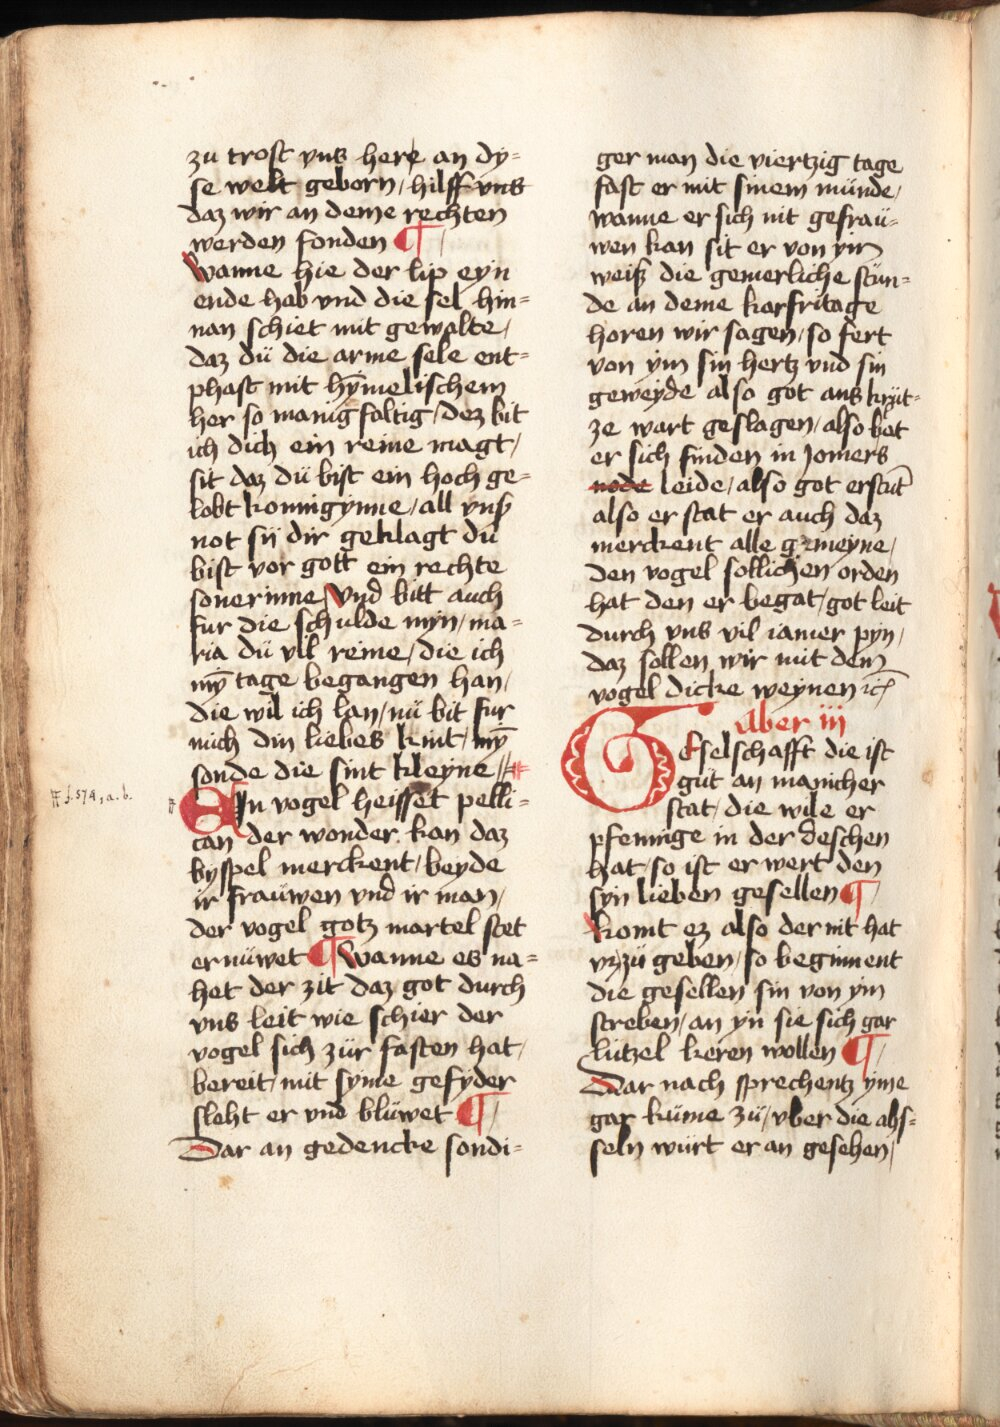 zu trost vns here an dy=
se welt geborn / hilff vns
daz wir an deme rechten
werden fonden ¶
Wanne hie der lip eyn
ende hab vnd die sel hin=
nan schiet mit gewalte /
daz dü die arme sele ent=
phast mit hȳmelischem
her so manigfaltig / dez bit
ich dich ein reine magt /
sit daz dü bist ein hoch ge=
lobt konnigynne / all vnß
not sij dir geklagt du
bist vor gott ein rechte
sonerinne / Vnd bitt auch
fur die schulde myn / ma=
ria dü vil reine / die ich
mȳ tage begangen han /
die wil ich lan / nü bit fur
mich din liebes kint / mȳ
sonde die sint kleyne //
# f. 574, a. b.
Ein vogel heisset pelli=
can der wonder kan daz
byspel merckent / beyde
ir frauwen vnd ir man /
der vogel gotz martel stet
ernüwet ¶ Wanne es na=
het der zit daz got durch
vns leit wie schier der
vogel sich zür fasten hat /
bereit / mit syme gefyder
sleht er vnd blüwet ¶
Dar an gedencke sondi=
ger man die viertzig tage
fast er mit sinem münde /
wanne er sich nit gefraü=
wen kan sit er von ym
weiß die gemerliche stün=
de an deme karfritage
horen wir sagen / so fert
von ym sin hertz vnd sin
geweyde also got ans krüt=
ze wart geslagen / also bet
er sich finden in Jomers
node leide / also got erstūt
also er stat er auch daz
merckent alle gemeyne /
den vogel sollichen orden
hat den er begat / got leit
durch vns vil iamer pyn /
daz sollen wir mit dem
vogel dicke weynen ic̄
Aber iij
Geselschafft die ist
güt an manicher
stat / die wile er
pfennige in der deschen
hat / so ist er wert den
syn lieben gesellen ¶
Komt ez also der nit hat
vßzü geben / so beginnent
die gesellen sin von ym
streben / an yn sie sich gar
lützel keren wollen ¶
Dar nach sprechentz yme
gar küme zü / vber die ahs=
seln würt er an gesehen /